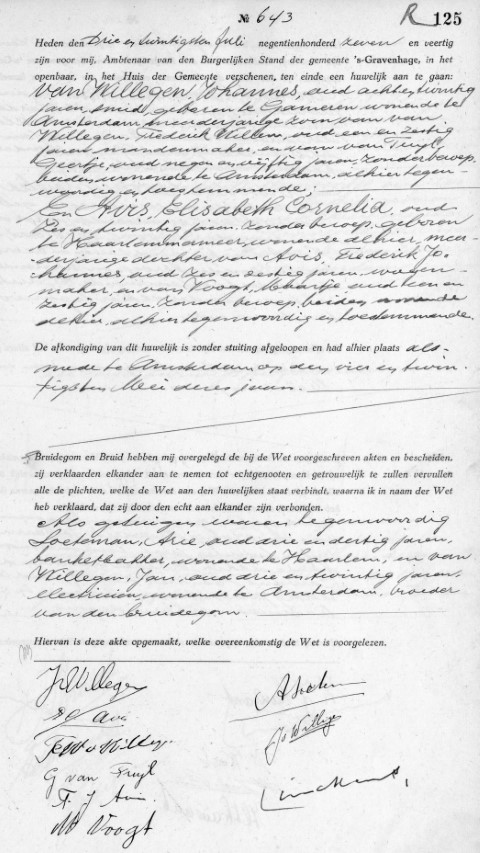 № 643 R 125
Heden den Drie en twintigsten Juli negentienhonderd zeven en veertig
zijn voor mij, Ambtenaar van den Burgerlijken Stand der gemeente 's-Gravenhage, in het
openbaar, in het Huis der Gemeente verschenen, ten einde een huwelijk aan te gaan:
van Willegen, Johannes, oud acht en twintig
jaren, smid, geboren te Gameren wonende te
Amsterdam, meerderjarige zoon van van
Willegen, Frederik Willem, oud een en zestig
jaren mandenmaker, en van van Tuyl,
Geertje, oud negen en vijftig jaren, zonder beroep,
beiden wonende te Amsterdam, alhier tegen-
woordig en toestemmende;
En Avis, Elisabeth Cornelia, oud
zes en twintig jaren, zonder beroep, geboren
te Haarlemmermeer, wonende alhier, meer-
derjarige dochter van Avis, Frederik Jo-
hannes, oud zes en zestig jaren, wagen-
maker, en van Voogt, Maartje, oud een en
zestig jaren, zonder beroep, beiden wonende
alhier, alhier tegenwoordig en toestemmende.
De afkondiging van dit huwelijk is zonder stuiting afgeloopen en had alhier plaats als-
mede te Amsterdam op den vier en twin-
tigsten Mei dezes jaars.
Bruidegom en Bruid hebben mij overgelegd de bij de Wet voorgeschreven akten en bescheiden,
zij verklaarden elkander aan te nemen tot echtgenooten en getrouwelijk te zullen vervullen
alle de plichten, welke de Wet aan den huwelijken staat verbindt, waarna ik in naam der Wet
heb verklaard, dat zij door den echt aan elkander zijn verbonden.
Als getuigen waren tegenwoordig
Soeteman, Arie, oud drie en dertig jaren,
banketbakker, wonende te Haarlem, en van
Willegen, Jan, oud drie en twintig jaren,
electricien, wonende te Amsterdam, broeder
van den bruidegom.
Hiervan is deze akte opgemaakt, welke overeenkomstig de Wet is voorgelezen.
J v Willegen
E C Avis
F W v Willegen
G van Tuyl
F. J Avis
M Voogt
A Soeteman
J v Willegen